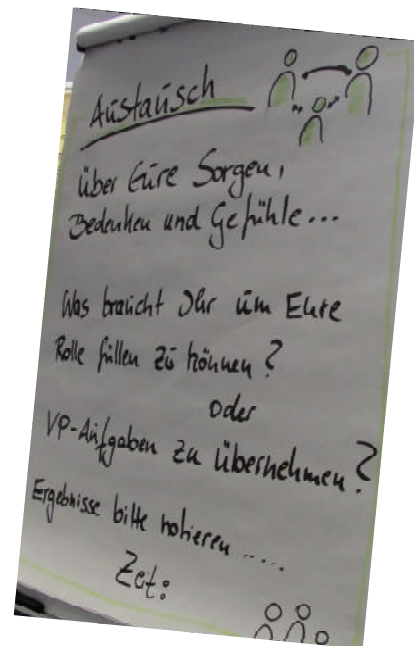 Austausch
über Eure Sorgen,
Bedenken und Gefühle...
Was braucht Ihr um Eure
Rolle füllen zu können?
oder
VP-Aufgaben zu übernehmen?
Ergebnisse bitte notieren.....
Zeit: